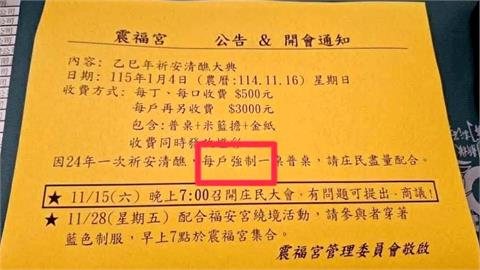 震福宮　公告 & 開會通知
內容：乙巳年祈安清醮大典
日期：115年1月4日（農曆:114.11.16）星期日
收費方式：每丁、每口收費 $500元
每戶再另收費 $3000元
包含：普桌+米籃擔+金紙
收費同時發
因24年一次祈安清醮，每戶強制一桌普桌，請庄民盡量配合。
★ 11/15(六) 晚上7:00召開庄民大會，有問題可提出，商議！
★ 11/28(星期五) 配合福安宮繞境活動，請參與者穿著
藍色制服，早上7點於震福宮集合。
震福宮管理委員會敬啟